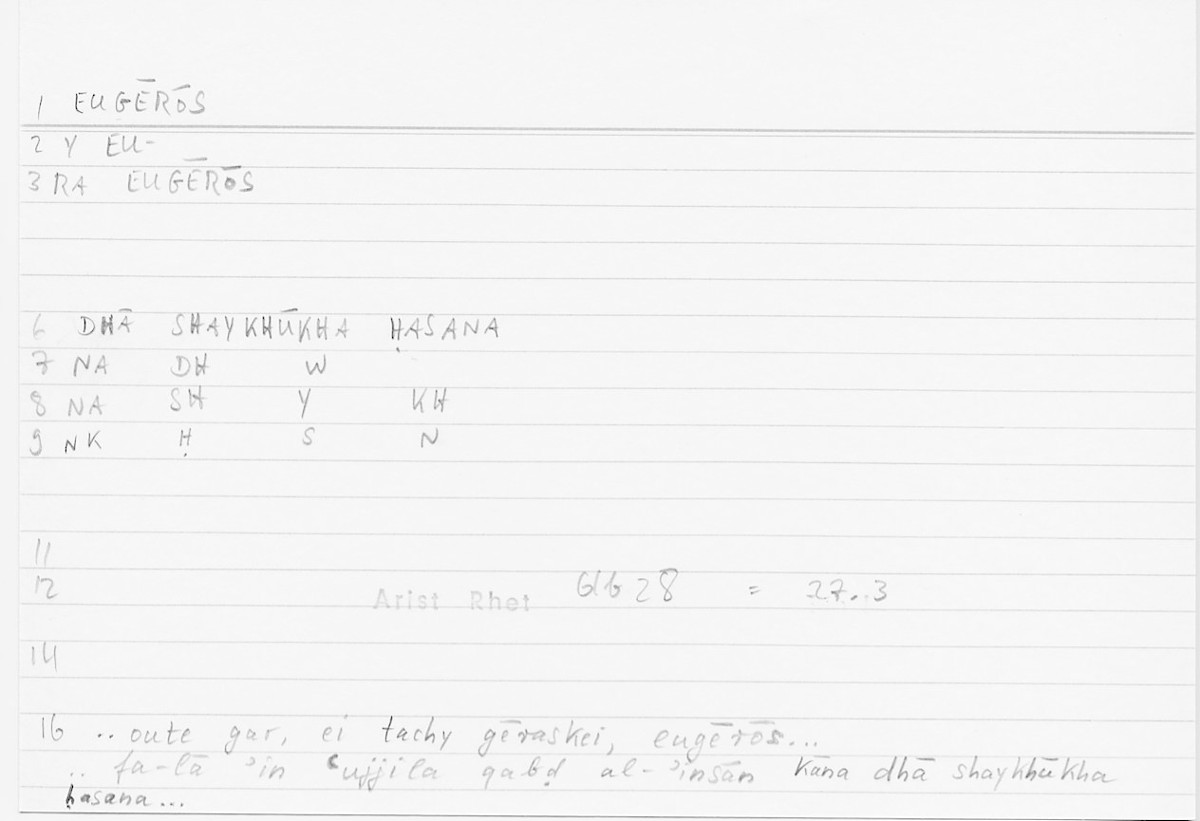 1 EUGĒRŌS
2 Y EU-
3 RA EUGĒRŌS
6 DHĀ SHAYKHŪKHA ḤASANA
7 NA DH W
8 NA SH Y KH
9 NK Ḥ S N
11
12 Arist Rhet 61b28 = 27.3
14
16 .. oute gar, ei tachy gēraskei, eugērōs...
.. fa-lā ʾin ʿujjila qabḍ al-ʾinsān kāna dhā shaykhūkha
ḥasana...